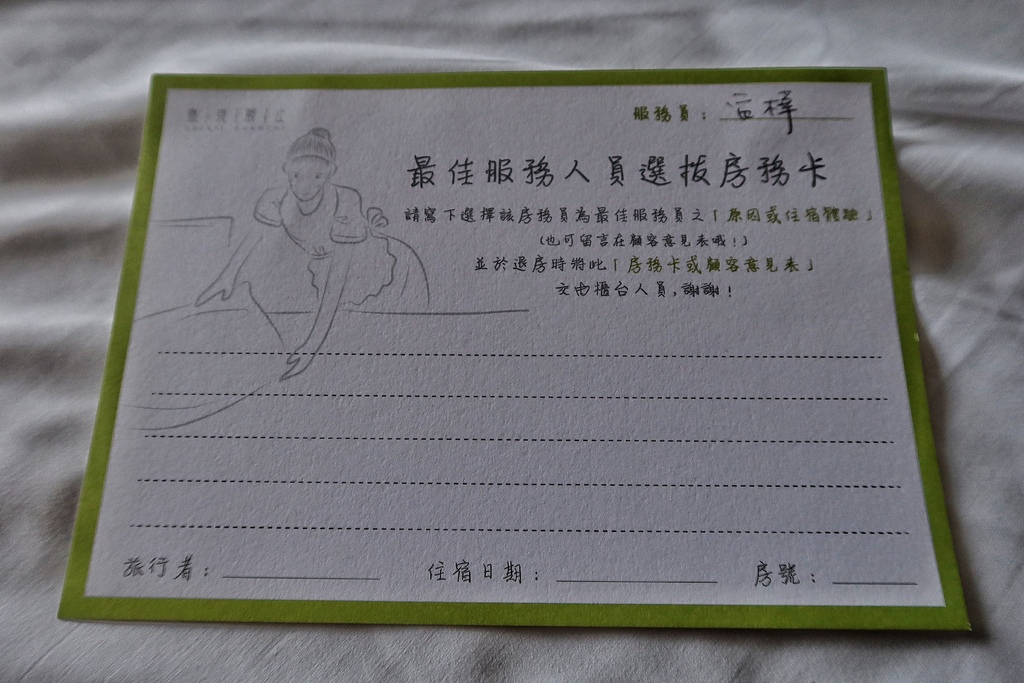 服務員：
最佳服務人員選拔房務卡
請寫下選擇該房務員為最佳服務員之「原因或住宿體驗」
(也可留言在顧客意見表哦！)
並於退房時將此「房務卡或顧客意見表」
交由櫃台人員，謝謝！
旅行者： 住宿日期： 房號：